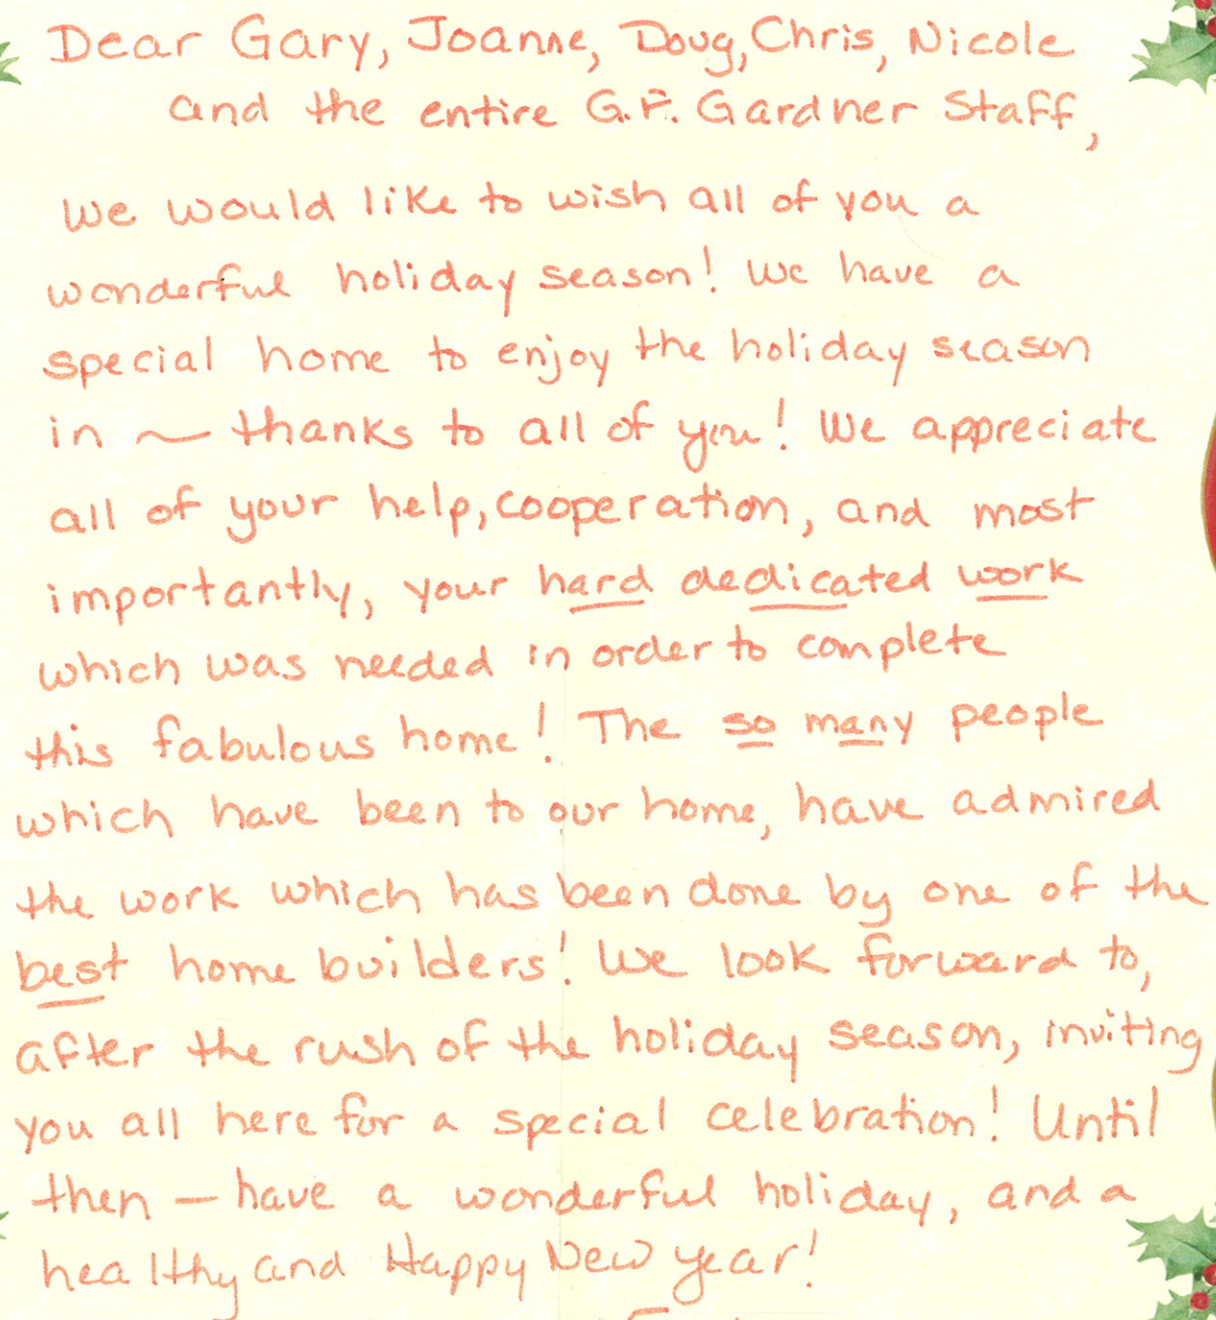 Dear Gary, Joanne, Doug, Chris, Nicole
and the entire G.F. Gardner Staff,
We would like to wish all of you a
wonderful holiday season! We have a
special home to enjoy the holiday season
in ~ thanks to all of you! We appreciate
all of your help, cooperation, and most
importantly, your hard dedicated work
which was needed in order to complete
this fabulous home! The so many people
which have been to our home, have admired
the work which has been done by one of the
best home builders! We look forward to,
after the rush of the holiday season, inviting
you all here for a special celebration! Until
then — have a wonderful holiday, and a
healthy and Happy New Year!